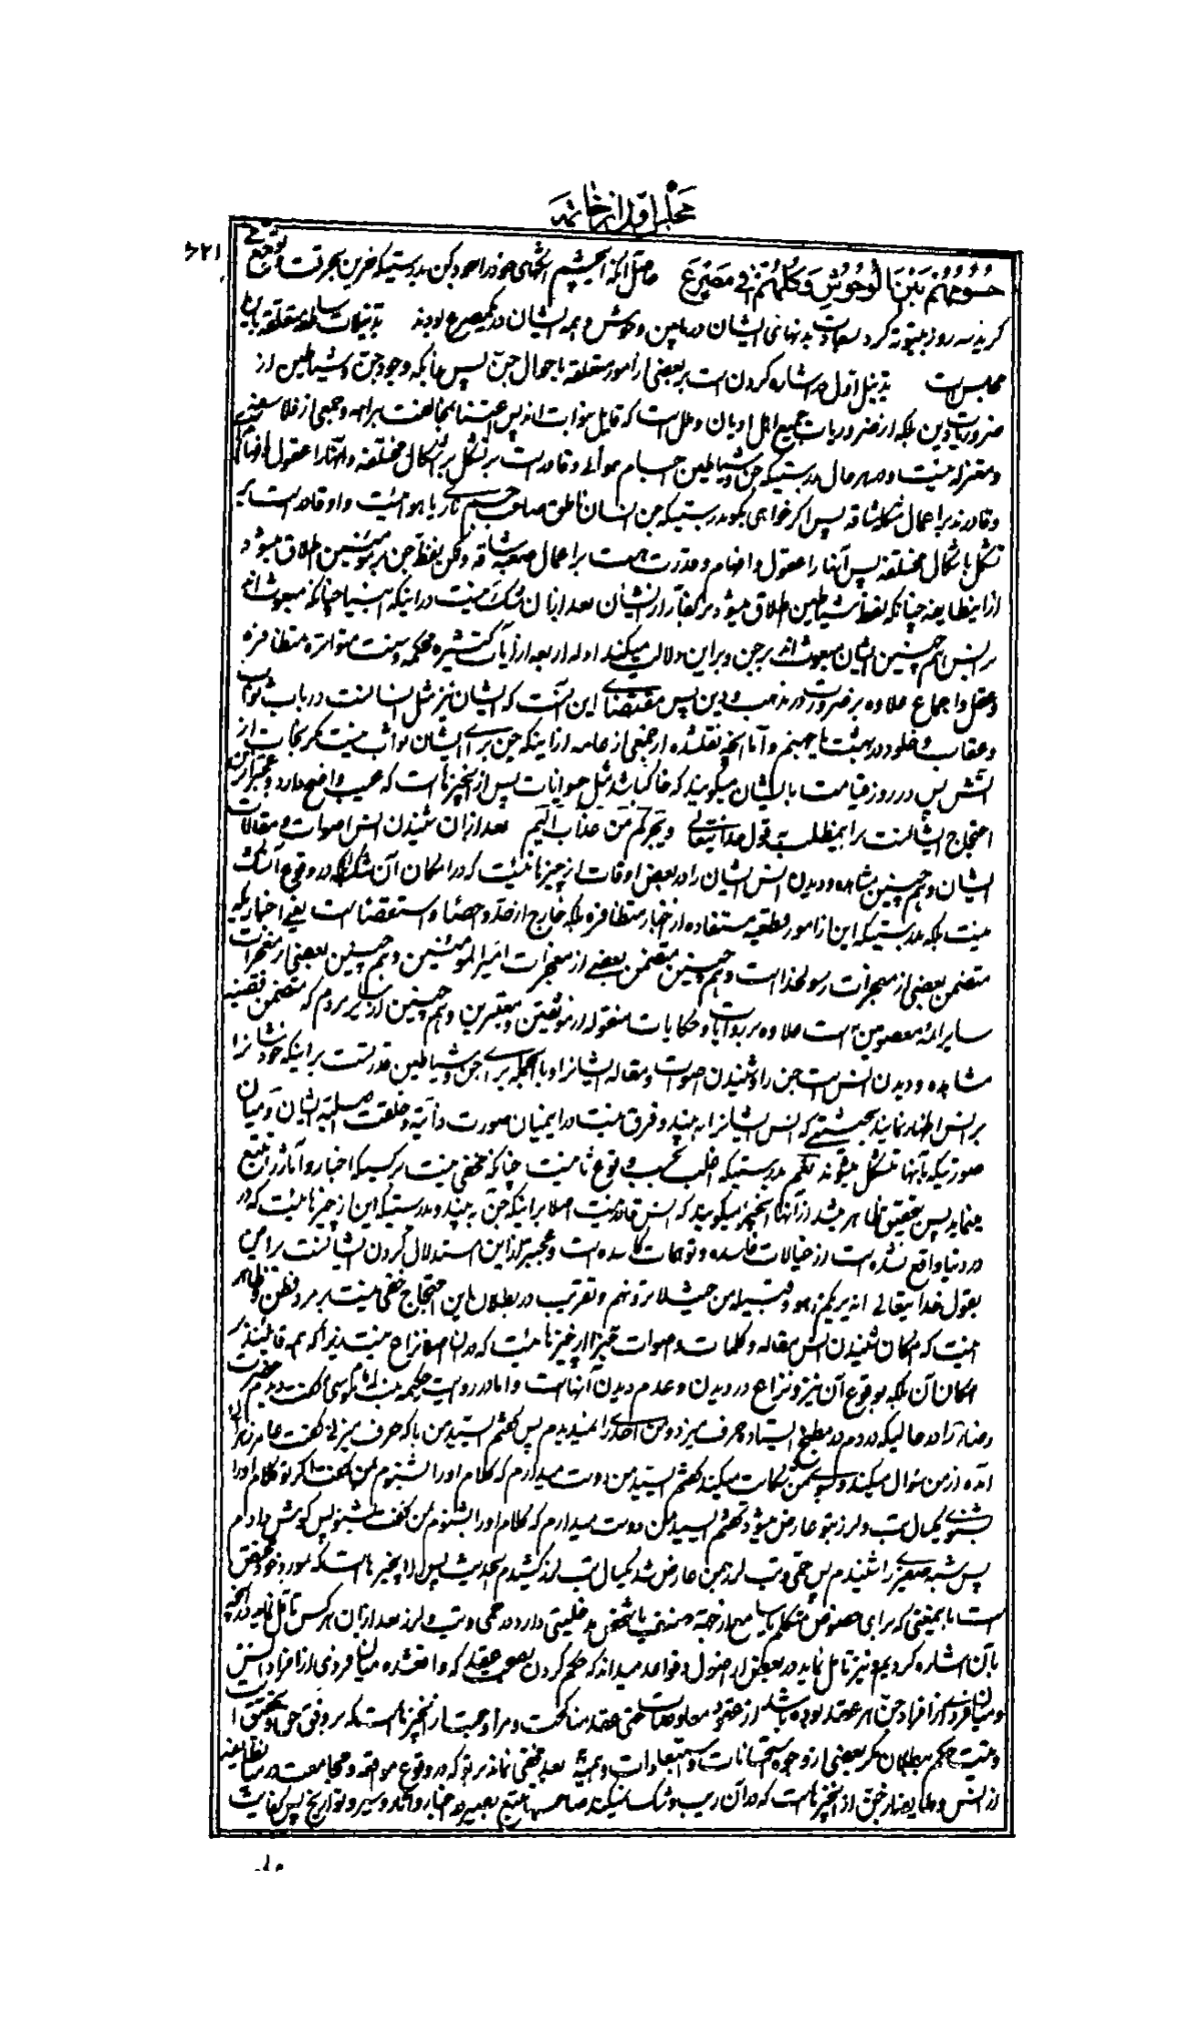 مجلس اول از خاتمه
۶۲۱
جُسُومُهُمْ بَيْنَ الْوُحُوشِ وَكُلُّهُمْ فِي مَصْرَعٍ حاصل آنکه ای چشم اشکهای خود را جود کن بدرستیکه حزین بحرقت
کریه سه روز بیتوته کرد بدنهای ایشان در مابین وحوش و همه ایشان در یک مصرع بودند تذنیبات متعلقه باین
مجلس است تذنیل اول در اشاره کردن است بر بعضی از امور متعلقه باحوال جن پس بدانکه وجود جن و شیاطین از
ضروریات دین بلکه از ضروریات جمیع اهل ادیان و ملل است که قایل بنبوات اند پس اعتنا بمخالفت براهمه و جمعی از فلاسفه
و معتزله نیست و در هر حال بدرستیکه جن و شیاطین اجسام هوائی و قادر است بر تشکل بر اشکال مختلفه و آنها را عقول و افهام
و قادرند بر اعمال شاقه پس اگر خواهی بگو بدرستیکه جن انسان ناطق صاحب جسم ناریا هوائیست و او قادر است بر
تشکل باشکال مختلفه پس آنها را عقول و افهام و قدرت هست بر اعمال صعبه شاقه و لکن لفظ جن بر مؤمنین اطلاق میشود
از این طایفه چنانکه لفظ شیاطین اطلاق میشود بر کفار از ایشان بعد از آن شک نیست در اینکه انبیا چنانکه مبعوث اند
بر انس هم چنین ایشان مبعوث اند بر جن و بر این دلالت میکند ادله اربعه از آیات کثیره محکمه و سنت متواتره متظافره
و عقل و اجماع علاوه بر ضرورت در مذهب و دین پس مقتضای این آنست که ایشان نیز مثل انسانند در باب ثواب
و عقاب و خلود در بهشت یا جهنم و اما آنچه نقل شده از جمعی از عامه از اینکه جن برای ایشان ثواب نیست مگر نجات از
آتش پس در روز قیامت بایشان میگویند که خاک باشید مثل حیوانات پس از آنچیزهاست که عیب واضح دارد و عجبتر از این
احتجاج ایشانست بر اینمطلب بقول خدایتعالی و یجرکم من عذاب الیم بعد از آن شنیدن انس اصوات و مقالات
ایشان و هم چنین مشاهده و دیدن انس ایشان را در بعض اوقات از چیزهائیست که در امکان آن شک بلکه در وقوع آن شک
نیست بلکه بدرستیکه این از امور قطعیه مستفاده از اخبار متظافره بلکه خارج از حد احصا و استقصاست یعنی اخباریکه
متضمن بعضی از معجزات رسولخداست و هم چنین متضمن بعضی از معجزات امیرالمؤمنین و هم چنین بعضی از معجزات
سایر ائمه معصومین است علاوه بر روایات و حکایات منقوله از موثقین و معتبرین و هم چنین از سایر مردم که متضمن قضیه
مشاهده و دیدن انس است جن را و شنیدن اصوات و مقاله ایشانرا و بالجمله برای جن و شیاطین قدرتست بر اینکه خودشانرا
بر انس اظهار نمایند بحیثیتی که انس ایشانرا به بیند و فرق نیست در ایمیان صورت ذاتیه و خلقت اصلیه ایشان و میان
صورتیکه بآنها متشکل میشوند بدرستیکه اغلب بحسب وقوع ثانیست چنانکه مخفی نیست بر کسیکه اخبار و آثار را تتبع
مینماید پس تحقیق ظاهر شد از آنها آنچیز میگویند که انس قادر نیست اصلا بر اینکه جن به بیند و بدرستیکه این از چیزهائیست که در
در دنیا واقع نشده است از خیالات فاسده و توهمات کاسده است و عجبتر از این استدلال کردن ایشانست بر این
بقول خدایتعالی انه یریکم هو و قبیله من حیث لا ترونهم و تقریب در بطلان این احتجاج خفی نیست بر مرد فطن و ظاهر
اینست که امکان شنیدن انس مقاله و کلمات و اصوات جن را از چیزهائیست که در آن اصلا نزاع نیست زیرا که همه قائلند بر
امکان آن بلکه بوقوع آن نیز و نزاع در دیدن و عدم دیدن آنهاست و اما در روایت حکیمه بنت امام موسی گفت دیدم حضرت
رضا را در حالیکه در دم در مطبخ ایستاده حرف میزد و من احدی را نمیدیدم پس گفتم ای سید من با که حرف میزنی گفت عامر زهرائی
آمده از من سؤال میکند و بسوی من شکایت میکند گفتم ای سید من دوست میدارم که کلام او را بشنوم بمن گفت اگر تو کلام او را
بشنوی یکسال تب و لرز بتو عارض میشود گفتم ای سید من دوست میدارم که کلام او را بشنوم بمن گفت بشنو پس گوش دادم
پس شبه صفیری را شنیدم پس حمی و تب لرز بمن عارض شد یکسال تب لرز کشیدم الحدیث پس از آنچیزهاست که مورد خود مختص
است باینمعنی که برای خصوص متکلم یا سامع از جهة و منهج یا شخص مدخلیتی دارد در حمی و تب و لرز بعد از آن هر کس تامل نماید در آنچه
بآن اشاره کردیم و نیز تامل نماید در بعض از اصول و قواعد میداند که حکم کردن بصحت عقدی که واقعشده میان فردی از افراد انس
و میان فردی از افراد جن هر عقد بوده باشد از عقود معاوضات حتی عقد مناکحت و مزاوجت از آنچیزهاست که بر وفق حق و تحقیق است
و نیست حکم ببطلان مگر بعضی از وجوه استحسانات و استبعادات وهمیه بعد مخفی نماند بر تو که در وقوع مواقعه و مجامعت در میان طایفه
از انس و طایفه از جن از آنچیزهاست که در آن ریب و شک نمیکند صاحب تتبع بصیر در اخبار و آثار و سیر و تواریخ پس کفایت